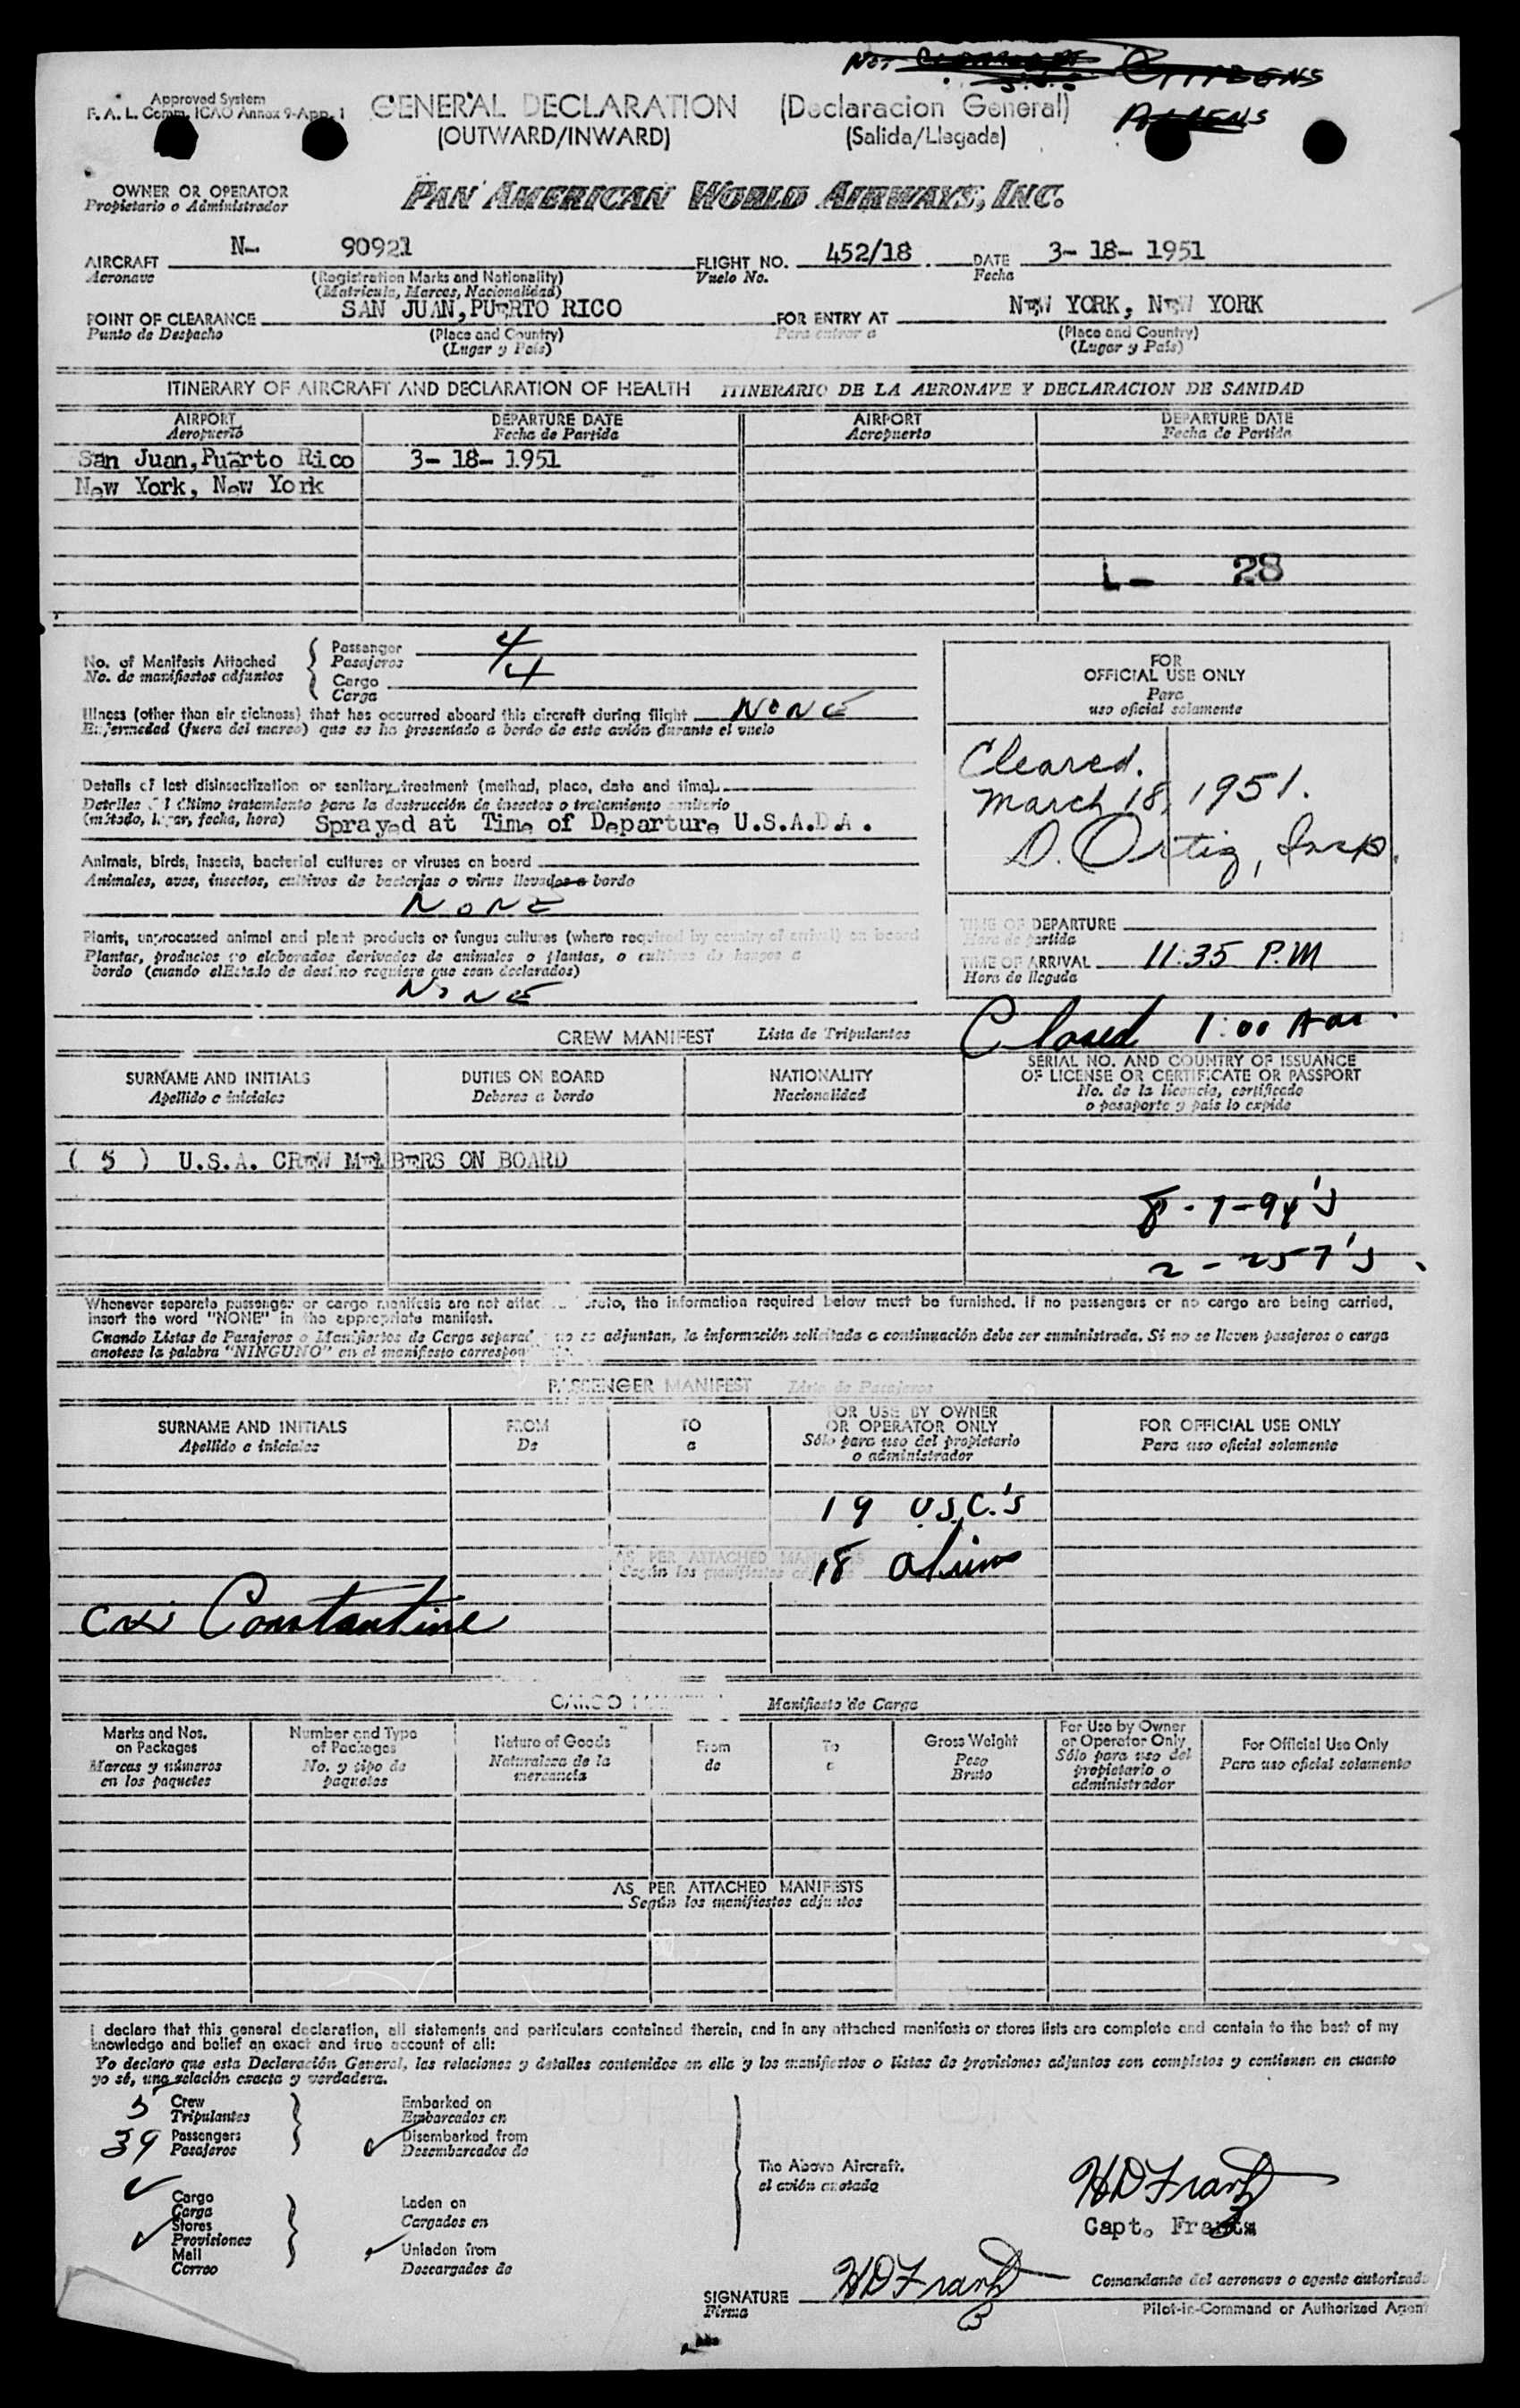 Not CITIZENS
ALIENS
Approved System
F. A. L. Comm. ICAO Annex 9-App. 1
GENERAL DECLARATION (Declaracion General)
(OUTWARD/INWARD) (Salida/Llegada)
OWNER OR OPERATOR
Propietario o Administrador
PAN AMERICAN WORLD AIRWAYS, INC.
AIRCRAFT N- 90921 FLIGHT NO. 452/18 DATE 3- 18- 1951
Aeronave (Registration Marks and Nationality) Vuelo No. Fecha
(Matricula, Marcas, Nacionalidad)
POINT OF CLEARANCE SAN JUAN, PUERTO RICO FOR ENTRY AT NEW YORK, NEW YORK
Punto de Despacho (Place and Country) Para entrar a (Place and Country)
(Lugar y País) (Lugar y País)
ITINERARY OF AIRCRAFT AND DECLARATION OF HEALTH ITINERARIO DE LA AERONAVE Y DECLARACION DE SANIDAD
AIRPORT DEPARTURE DATE AIRPORT DEPARTURE DATE
Aeropuerto Fecha de Partida Aeropuerto Fecha de Partida
San Juan, Puerto Rico 3- 18- 1951
New York, New York
L- 28
No. of Manifests Attached
No. de manifiestos adjuntos
Passenger 4
Pasajeros
Cargo 4
Carga
Illness (other than air sickness) that has occurred aboard this aircraft during flight NONE
Enfermedad (fuera del mareo) que se ha presentado a bordo de este avión durante el vuelo
Details of last disinsectization or sanitary treatment (method, place, date and time)
Detalles del último tratamiento para la destrucción de insectos o tratamiento sanitario
(método, lugar, fecha, hora) Sprayed at Time of Departure U.S.A.D.A.
Animals, birds, insects, bacterial cultures or viruses on board
Animales, aves, insectos, cultivos de bacterias o virus llevados a bordo
NONE
Plants, unprocessed animal and plant products or fungus cultures (where required by country of arrival) on board
Plantas, productos no elaborados derivados de animales o plantas, o cultivos de hongos a
bordo (cuando el Estado de destino requiere que sean declarados)
NONE
FOR
OFFICIAL USE ONLY
Para
uso oficial solamente
Cleared.
March 18, 1951.
D. Ortiz, Insp.
TIME OF DEPARTURE
Hora de partida
TIME OF ARRIVAL 11:35 P.M
Hora de llegada
Closed 1:00 Am
CREW MANIFEST Lista de Tripulantes
SURNAME AND INITIALS DUTIES ON BOARD NATIONALITY SERIAL NO. AND COUNTRY OF ISSUANCE
OF LICENSE OR CERTIFICATE OR PASSPORT
Apellido e iniciales Deberes a bordo Nacionalidad No. de la licencia, certificado
o pasaporte y país lo expide
( 5 ) U.S.A. CREW MEMBERS ON BOARD
8-I-94's
2-257's
Whenever separate passenger or cargo manifests are not attached hereto, the information required below must be furnished. If no passengers or no cargo are being carried,
insert the word "NONE" in the appropriate manifest.
Cuando Listas de Pasajeros o Manifiestos de Carga separados no se adjuntan, la información solicitada a continuación debe ser suministrada. Si no se lleven pasajeros o carga
anotese la palabra "NINGUNO" en el manifiesto correspondiente.
PASSENGER MANIFEST Lista de Pasajeros
SURNAME AND INITIALS FROM TO FOR USE BY OWNER
OR OPERATOR ONLY FOR OFFICIAL USE ONLY
Apellido e iniciales De a Sólo para uso del propietario
o administrador Para uso oficial solamente
19 U.S.C.'s
AS PER ATTACHED MANIFESTS
Según los manifiestos adjuntos
18 aliens
Constantine
CARGO MANIFEST Manifiesto de Carga
Marks and Nos.
on Packages
Marcas y números
en los paquetes
Number and Type
of Packages
No. y tipo de
paquetes
Nature of Goods
Naturaleza de la
mercancía
From
de
To
a
Gross Weight
Peso
Bruto
For Use by Owner
or Operator Only
Sólo para uso del
propietario o
administrador
For Official Use Only
Para uso oficial solamente
AS PER ATTACHED MANIFESTS
Según los manifiestos adjuntos
I declare that this general declaration, all statements and particulars contained therein, and in any attached manifests or stores lists are complete and contain to the best of my
knowledge and belief an exact and true account of all:
Yo declaro que esta Declaración General, las relaciones y detalles contenidos en ella y los manifiestos o listas de provisiones adjuntos son completos y contienen en cuanto
yo sé, una relación exacta y verdadera.
5 Crew
Tripulantes
39 Passengers
Pasajeros
Embarked on
Embarcados en
Disembarked from
Desembarcados de
Cargo
Carga
Stores
Provisiones
Mail
Correo
Laden on
Cargados en
Unladen from
Descargados de
The Above Aircraft.
el avión anotado
HDFrantz
Capt. Frantz
SIGNATURE HDFrantz
Firma
Comandante del aeronave o agente autorizado
Pilot-in-Command or Authorized Agent